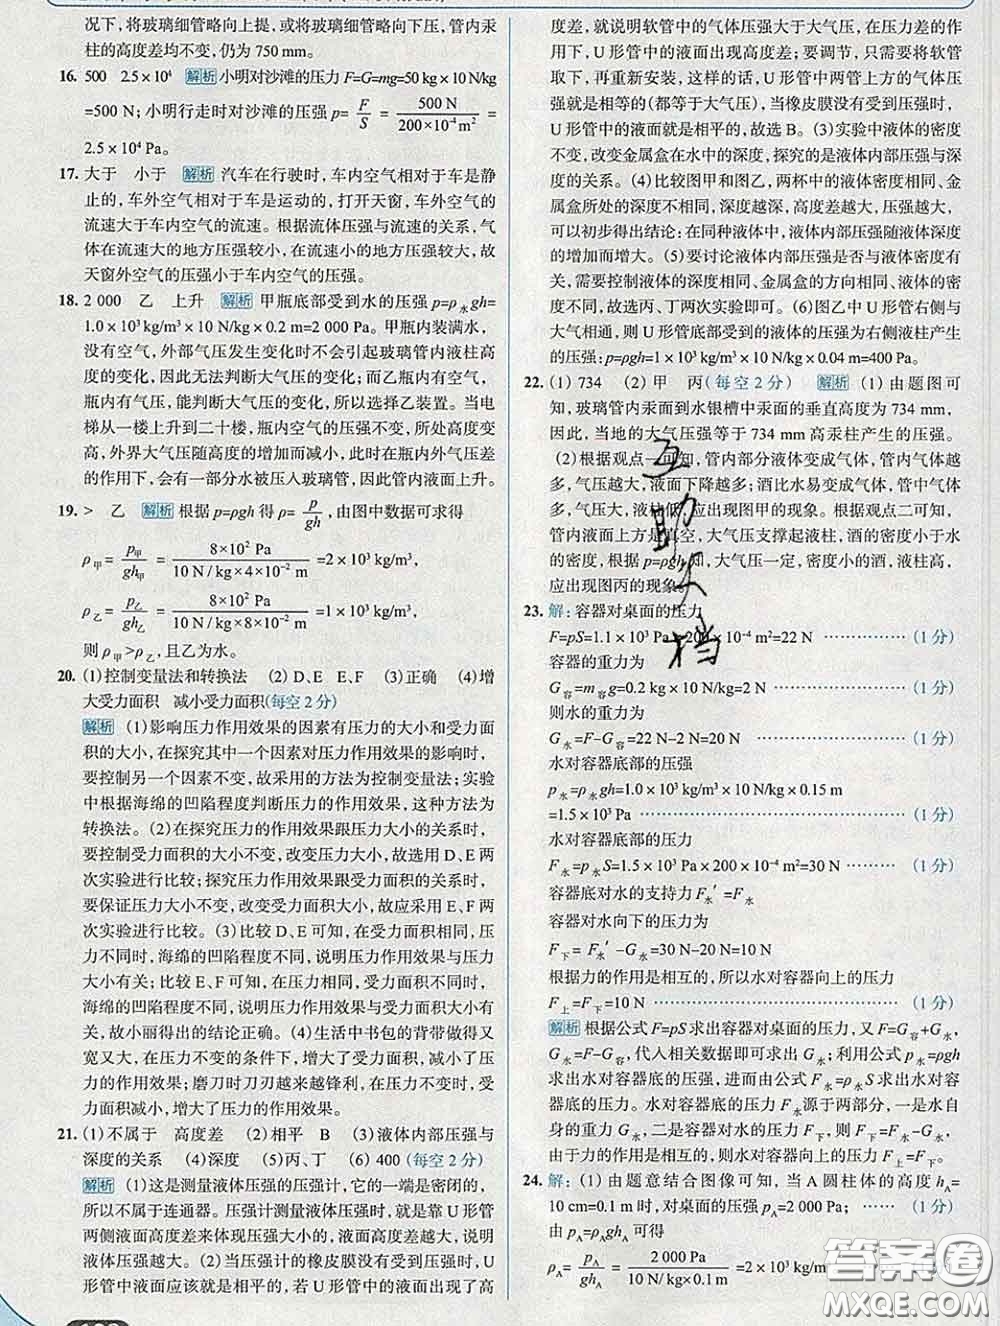 况下，将玻璃细管略向上提，或将玻璃细管略向下压，管内汞
柱的高度差均不变，仍为 750 mm。
16. 500　2.5×10⁴　解析 小明对沙滩的压力 F=G=mg=50 kg×10 N/kg
=500 N；小明行走时对沙滩的压强 p= F/S = 500 N / 200×10⁻⁴ m² =
2.5×10⁴ Pa。
17. 大于　小于　解析 汽车在行驶时，车内空气相对于车是静
止的，车外空气相对于车是运动的，打开天窗，车外空气的
流速大于车内空气的流速。根据流体压强与流速的关系，气
体在流速大的地方压强较小，在流速小的地方压强较大，故
天窗外空气的压强小于车内空气的压强。
18. 2 000　乙　上升　解析 甲瓶底部受到水的压强 p=ρ水gh=
1.0×10³ kg/m³×10 N/kg×0.2 m=2 000 Pa。甲瓶内装满水，
没有空气，外部气压发生变化时不会引起玻璃管内液柱高
度的变化，因此无法判断大气压的变化；而乙瓶内有空气，
瓶内有气压，能判断大气压的变化，所以选择乙装置。当电
梯从一楼上升到二十楼，瓶内空气的压强不变，所处高度变
高，外界大气压随高度的增加而减小，此时在瓶内外气压差
的作用下，会有一部分水被压入玻璃管，因此管内液面上升。
19. >　乙　解析 根据 p=ρgh 得 ρ= p/gh，由图中数据可求得
ρ甲= p甲/gh甲 = 8×10² Pa / 10 N/kg×4×10⁻² m =2×10³ kg/m³，
ρ乙= p乙/gh乙 = 8×10² Pa / 10 N/kg×8×10⁻² m =1×10³ kg/m³，
则 ρ甲>ρ乙，且乙为水。
20. (1)控制变量法和转换法　(2)D、E　E、F　(3)正确　(4)增
大受力面积　减小受力面积(每空2分)
解析 (1)影响压力作用效果的因素有压力的大小和受力面
积的大小，在探究其中一个因素对压力作用效果的影响时，
要控制另一个因素不变，故采用的方法为控制变量法；实验
中根据海绵的凹陷程度判断压力的作用效果，这种方法为
转换法。(2)在探究压力的作用效果跟压力大小的关系时，
要控制受力面积的大小不变，改变压力大小，故选用 D、E 两
次实验进行比较；探究压力作用效果跟受力面积的关系时，
要保证压力大小不变，改变受力面积大小，故应采用 E、F 两
次实验进行比较。(3)比较 D、E 可知，在受力面积相同，
压力不同时，海绵的凹陷程度不同，说明压力作用效果与压
力大小有关；比较 E、F 可知，在压力相同，受力面积不同时，
海绵的凹陷程度不同，说明压力作用效果与受力面积大小有
关，故小丽得出的结论正确。(4)生活中书包的背带做得又
宽又大，在压力不变的条件下，增大了受力面积，减小了压
力的作用效果；磨刀时刀刃越来越锋利，在压力不变时，受
力面积减小，增大了压力的作用效果。
21. (1)不属于　高度差　(2)相平　B　(3)液体内部压强与
深度的关系　(4)深度　(5)丙、丁　(6) 400 (每空2分)
解析 (1)这是测量液体压强的压强计，它的一端是密闭的，
所以不属于连通器。压强计测量液体压强时，就是靠 U 形管
两侧液面高度差来体现压强大小的，液面高度差越大，说明
液体压强越大。(2)当压强计的橡皮膜没有受到压强时，U
形管中液面应该就是相平的，若 U 形管中的液面出现了高
度差，就说明软管中的气体压强大于大气压，在此压强差的
作用下，U 形管中的液面出现高度差；要调节，只需要将软管
取下，再重新安装，这样的话，U 形管中两管上方的气体压
强就是相等的(都等于大气压)，当橡皮膜没有受到压强时，
U 形管中的液面就是相平的，故选 B。(3)实验中液体的密度
不变，改变金属盒在水中的深度，探究的是液体内部压强与深
度的关系。(4)比较图甲和图乙，两杯中的液体密度相同、金
属盒所处的深度不同，深度越深，高度差越大，压强越大，
可以初步得出结论：在同种液体中，液体内部压强随液体深度
的增加而增大。(5)要讨论液体内部压强是否与液体密度有
关，需要控制液体的深度相同、金属盒的方向相同、液体的密
度不同，故选丙、丁两次实验即可。(6)图乙中 U 形管右侧与
大气相通，则 U 形管底部受到的液体的压强为右侧液柱产生
的压强：p=ρgh=1×10³ kg/m³×10 N/kg×0.04 m=400 Pa。
22. (1) 734　(2)甲　丙(每空2分)　解析 (1)由题图可
知，玻璃管内汞面到水银槽中汞面的垂直高度为 734 mm，
因此，当地的大气压强等于 734 mm 高汞柱产生的压强。
(2)根据观点一可知，管内部分液体变成气体，管内气体越
多，气压越大，液面下降越多；酒比水易变成气体，管中气体
多，气压大，液柱低，应出现图甲的现象。根据观点二可知，
管内液面上方是真空，大气压支撑起液柱，酒的密度小于水
的密度，根据 p=ρgh 知，大气压一定，密度小的酒，液柱高，
应出现图丙的现象。
互助文档
23. 解：容器对桌面的压力
F=pS=1.1×10³ Pa×200×10⁻⁴ m²=22 N ……………(1分)
容器的重力为
G容=m容g=0.2 kg×10 N/kg=2 N ……………(1分)
则水的重力为
G水=F-G容=22 N-2 N=20 N ……………(1分)
水对容器底部的压强
p水=ρ水gh=1.0×10³ kg/m³×10 N/kg×0.15 m
=1.5×10³ Pa ……………(1分)
水对容器底部的压力
F水=p水S=1.5×10³ Pa×200×10⁻⁴ m²=30 N ………(1分)
容器底对水的支持力 F水′=F水
容器对水向下的压力为
F下=F水′-G水=30 N-20 N=10 N
根据力的作用是相互的，所以水对容器向上的压力
F上=F下=10 N ……………(1分)
解析 根据公式 F=pS 求出容器对桌面的压力，又 F=G容+G水，
G水=F-G容，代入相关数据即可求出 G水；利用公式 p水=ρgh
求出水对容器底的压强，进而由公式 F水=p水S 求出水对容
器底的压力。水对容器底的压力 F水源于两部分，一是水自
身的重力 G水，二是容器对水的压力 F下，则 F下=F水-G水。
由于力的作用是相互的，则水对容器向上的压力 F上=F下。
24. 解：(1)由题意结合图像可知，当 A 圆柱体的高度 hA=
10 cm=0.1 m 时，对桌面的压强 pA=2 000 Pa；……(1分)
由 pA=ρAghA 可得
ρA= pA/ghA = 2 000 Pa / 10 N/kg×0.1 m =2×10³ kg/m³
答案圈
MXQE.COM